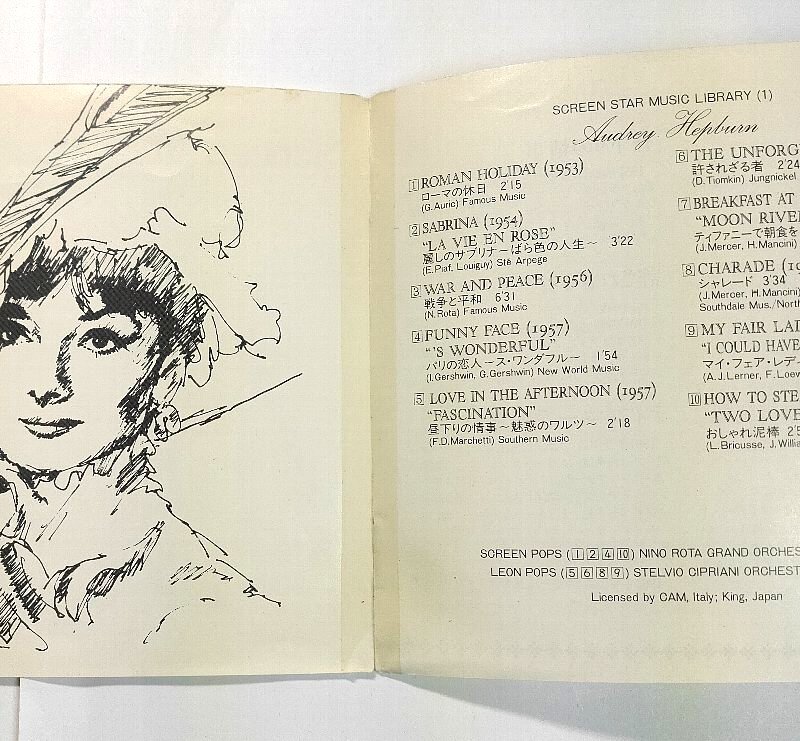 SCREEN STAR MUSIC LIBRARY (1)
Audrey Hepburn
1 ROMAN HOLIDAY (1953)
ローマの休日 2'15
(G.Auric) Famous Music
2 SABRINA (1954)
"LA VIE EN ROSE"
麗しのサブリナーばら色の人生～ 3'22
(E.Piaf. Louiguy) Sté Arpege
3 WAR AND PEACE (1956)
戦争と平和 6'31
(N.Rota) Famous Music
4 FUNNY FACE (1957)
"'S WONDERFUL"
パリの恋人－ス・ワンダフル～ 1'54
(I.Gershwin, G.Gershwin) New World Music
5 LOVE IN THE AFTERNOON (1957)
"FASCINATION"
昼下りの情事～魅惑のワルツ～ 2'18
(F.D.Marchetti) Southern Music
6 THE UNFORG
許されざる者 2'24
(D.Tiomkin) Jungnickel
7 BREAKFAST AT
"MOON RIVE
ティファニーで朝食を
(J.Mercer, H.Mancini)
8 CHARADE (19
シャレード 3'34
(J.Mercer, H.Mancini)
Southdale Mus./North
9 MY FAIR LAD
"I COULD HAVE
マイ・フェア・レディ
(A.J.Lerner, F.Loew
10 HOW TO STE
"TWO LOVE
おしゃれ泥棒 2'5
(L.Bricusse, J.Willia
SCREEN POPS (1 2 4 10) NINO ROTA GRAND ORCHES
LEON POPS (5 6 8 9) STELVIO CIPRIANI ORCHEST
Licensed by CAM, Italy; King, Japan